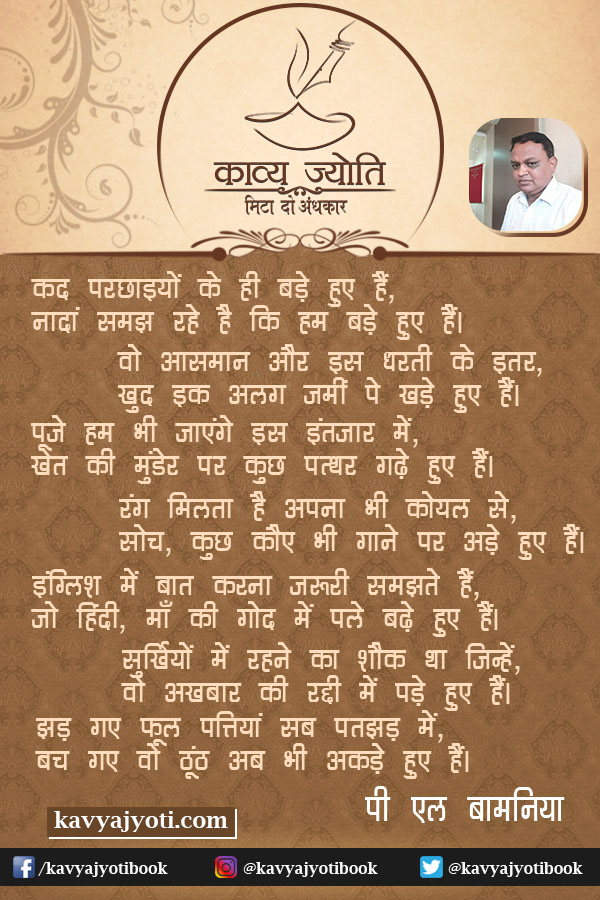 काव्य ज्योति
मिटा दो अंधकार
कद परछाइयों के ही बड़े हुए हैं,
नादां समझ रहे है कि हम बड़े हुए हैं।
वो आसमान और इस धरती के इतर,
खुद इक अलग जमीं पे खड़े हुए हैं।
पूजे हम भी जाएंगे इस इंतजार में,
खेत की मुंडेर पर कुछ पत्थर गढ़े हुए हैं।
रंग मिलता है अपना भी कोयल से,
सोच, कुछ कौए भी गाने पर अड़े हुए हैं।
इंग्लिश में बात करना जरूरी समझते हैं,
जो हिंदी, माँ की गोद में पले बढ़े हुए हैं।
सुर्खियों में रहने का शौक था जिन्हें,
वो अखबार की रद्दी में पड़े हुए हैं।
झड़ गए फूल पत्तियां सब पतझड़ में,
बच गए वो ठूंठ अब भी अकड़े हुए हैं।
पी एल बामनिया
kavyajyoti.com
/kavyajyotibook @kavyajyotibook @kavyajyotibook